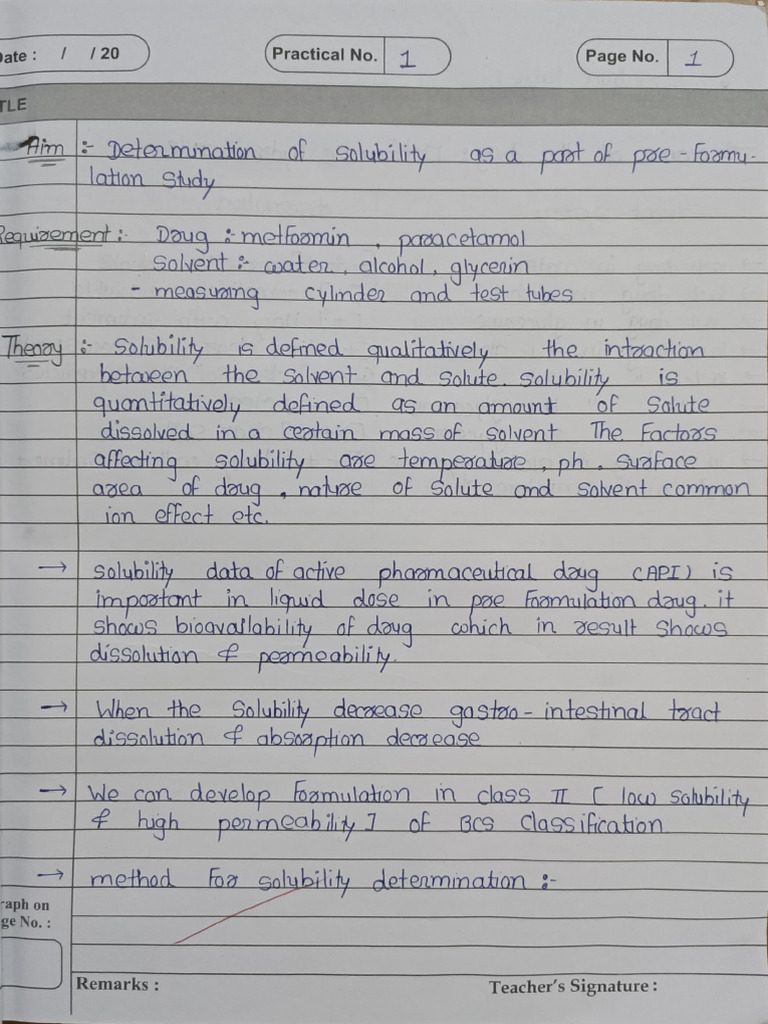 Date : / / 20 Practical No. 1 Page No. 1
TLE
Aim :- Determination of solubility as a part of pre-formu-
lation study
Requirement :- Drug :- metformin , paracetamol
Solvent :- water , alcohol , glycerin
- measuring cylinder and test tubes
Theory :- Solubility is defined qualitatively the intraction
between the solvent and solute. solubility is
quantitatively defined as an amount of solute
dissolved in a certain mass of solvent The Factors
affecting solubility are temperature , ph , surface
area of drug , nature of solute and solvent common
ion effect etc.
→ solubility data of active pharmaceutical drug (API) is
important in liquid dose in pre formulation drug. it
shows bioavailability of drug which in result shows
dissolution & permeability.
→ When the solubility decrease gastro-intestinal tract
dissolution & absorption decrease
→ We can develop formulation in class II [ low solubility
& high permeability ] of BCS classification.
→ method for solubility determination :-
raph on
ge No. :
Remarks : Teacher's Signature :